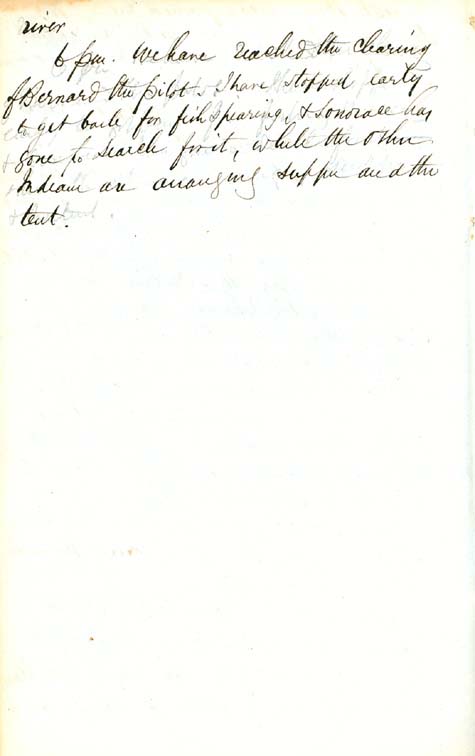 river
6 p.m. We have reached the clearing
of Bernard the pilot. I have stopped early
to get bark for fish spearing, & has
gone to search for it, while the other
Indians are arranging supper and the
tent.